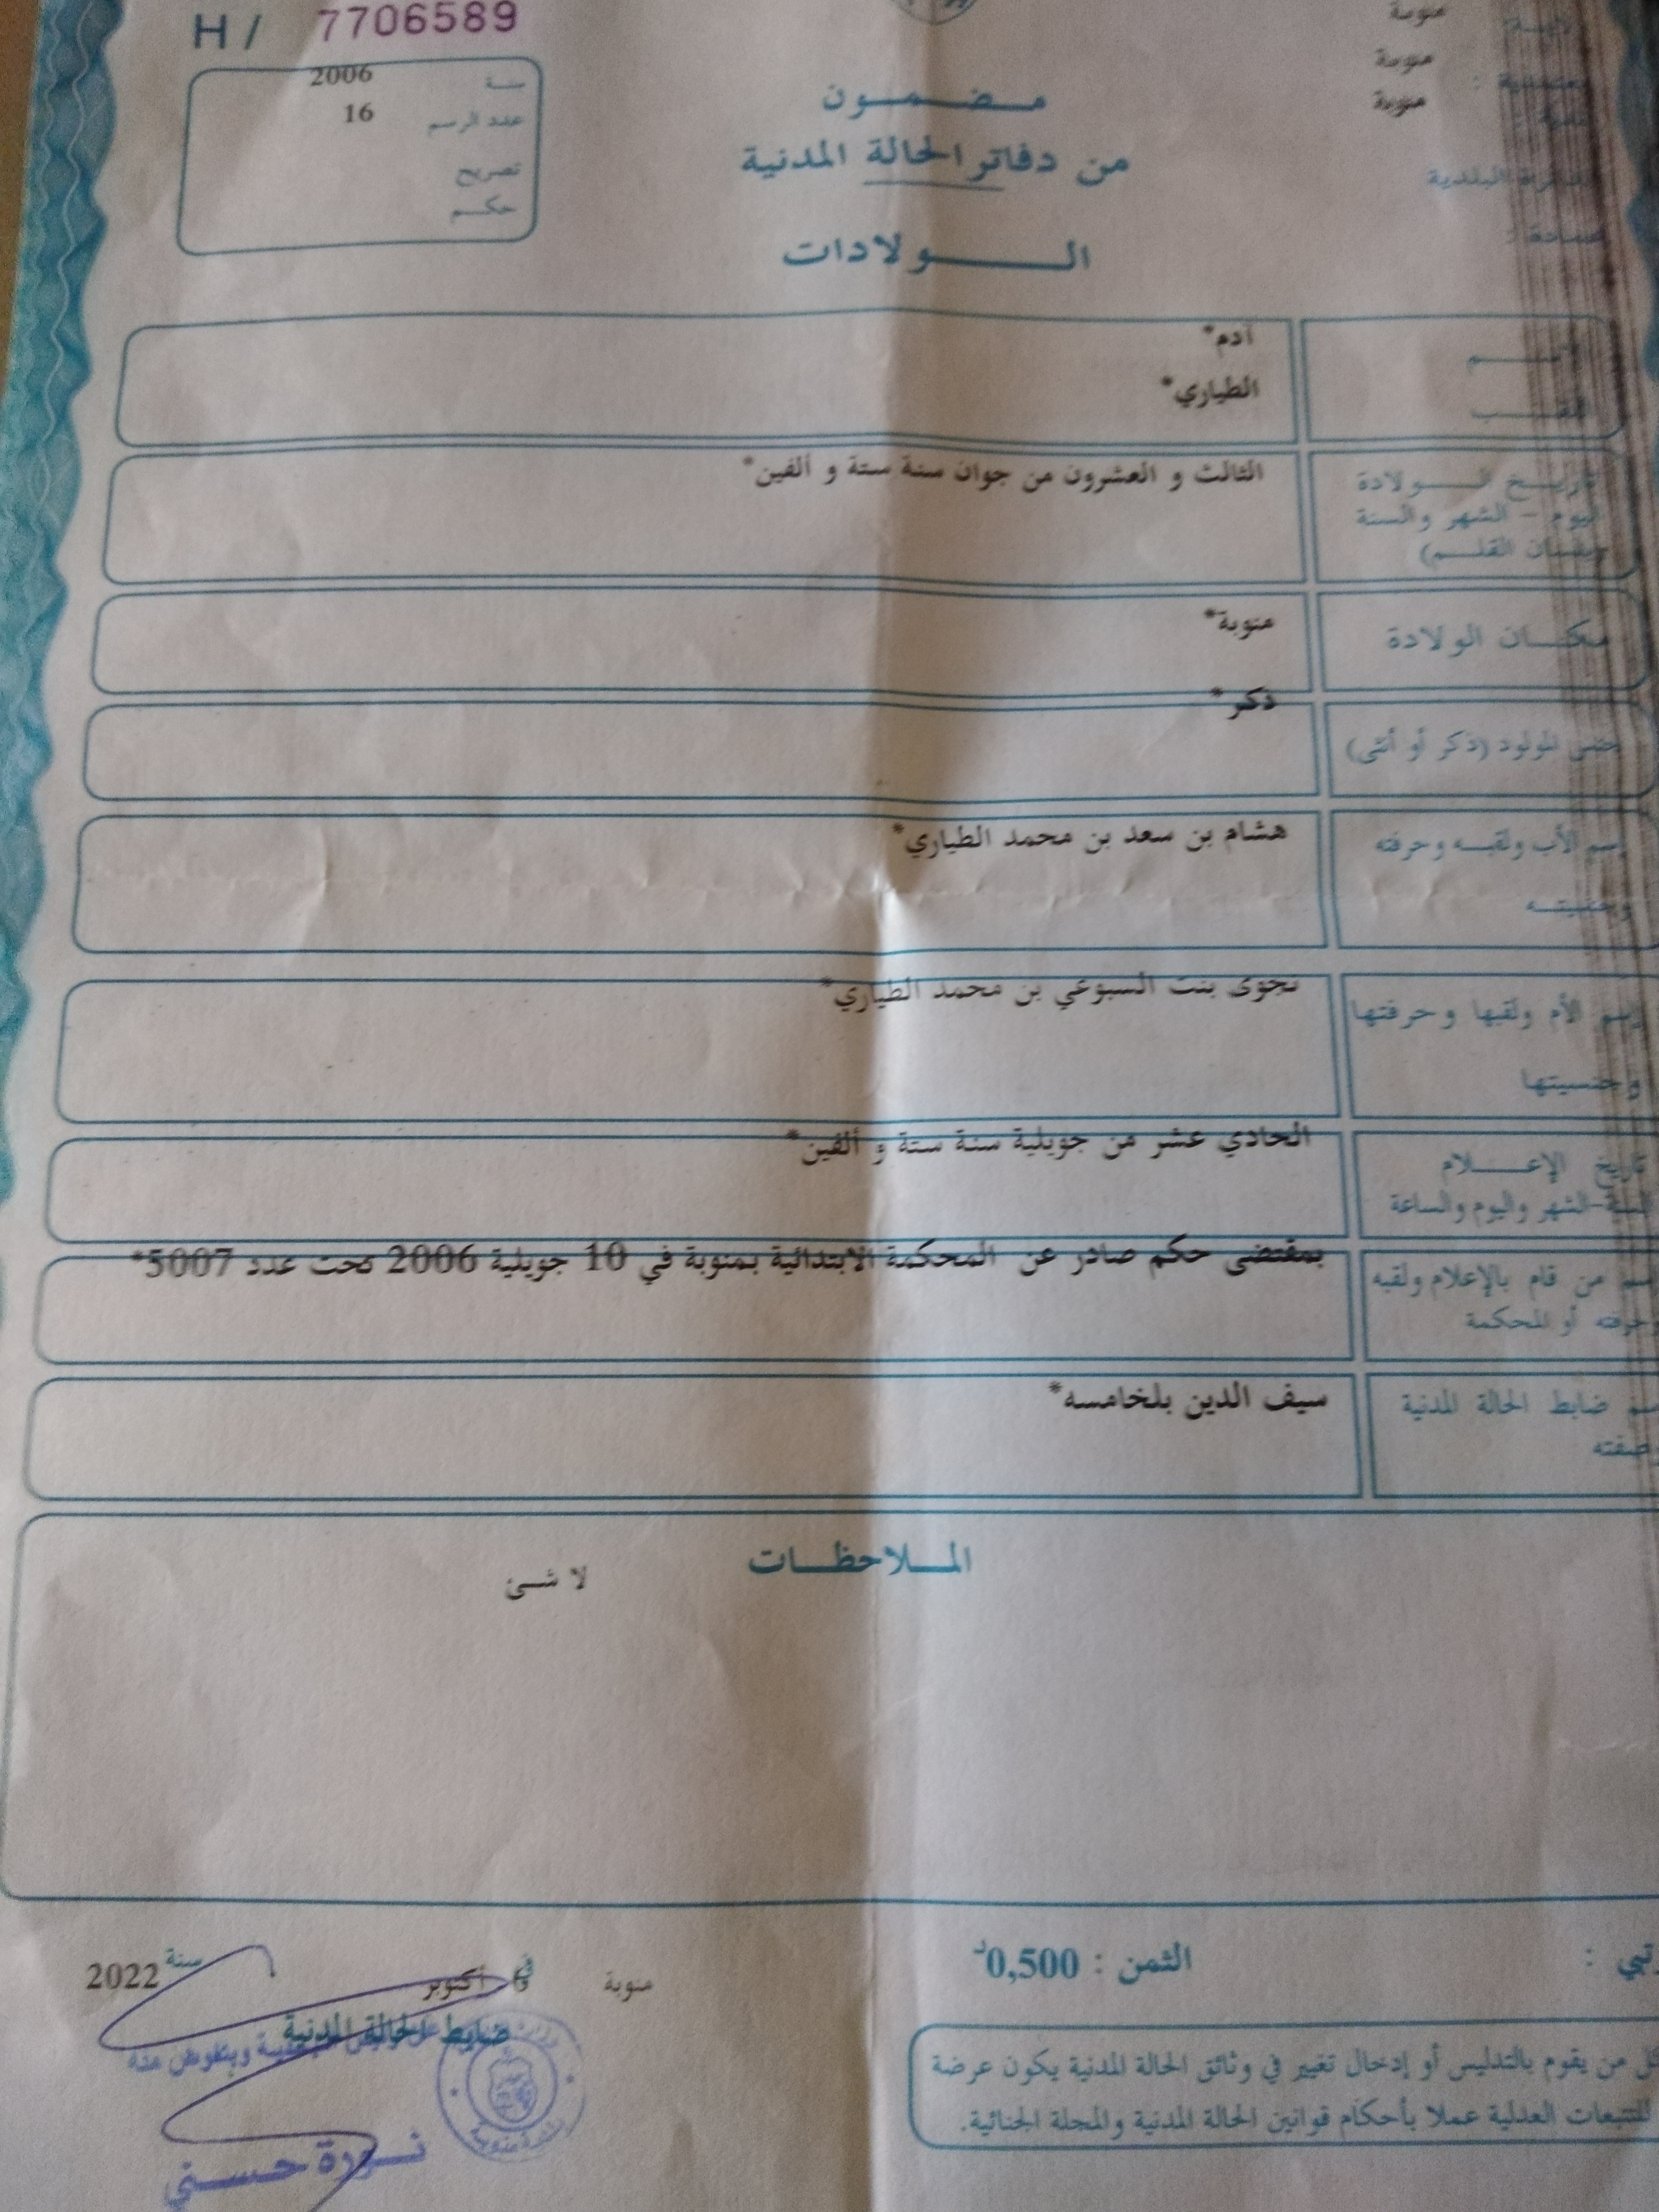 H / 7706589
منوبة
منوبة
منوبة
سنة 2006
عدد الرسم 16
تصريح
حكم
مضمون
من دفاتر الحالة المدنية
الولادات
البلدية
آدم*
الطياري*
تاريخ الولادة
اليوم - الشهر والسنة
القلم)
الثالث و العشرون من جوان سنة ستة و ألفين*
مكان الولادة
منوبة*
جنس المولود (ذكر أو أنثى)
ذكر*
إسم الأب ولقبه وحرفته
وجنسيته
هشام بن سعد بن محمد الطياري*
إسم الأم ولقبها وحرفتها
وجنسيتها
نجوى بنت السبوعي بن محمد الطياري*
تاريخ الإعلام
السنة-الشهر واليوم والساعة
الحادي عشر من جويلية سنة ستة و ألفين*
من قام بالإعلام ولقبه
وحرفته أو المحكمة
بمقتضى حكم صادر عن المحكمة الابتدائية بمنوبة في 10 جويلية 2006 تحت عدد 5007*
ضابط الحالة المدنية
وصفته
سيف الدين بلخامسه*
الملاحظات
لا شئ
الثمن : 0,500د
منوبة في 6 أكتوبر سنة 2022
ضابط الحالة المدنية
وبتفويض منه
نورة حسني
كل من يقوم بالتدليس أو إدخال تغيير في وثائق الحالة المدنية يكون عرضة
للتتبعات العدلية عملا بأحكام قوانين الحالة المدنية والمجلة الجنائية.